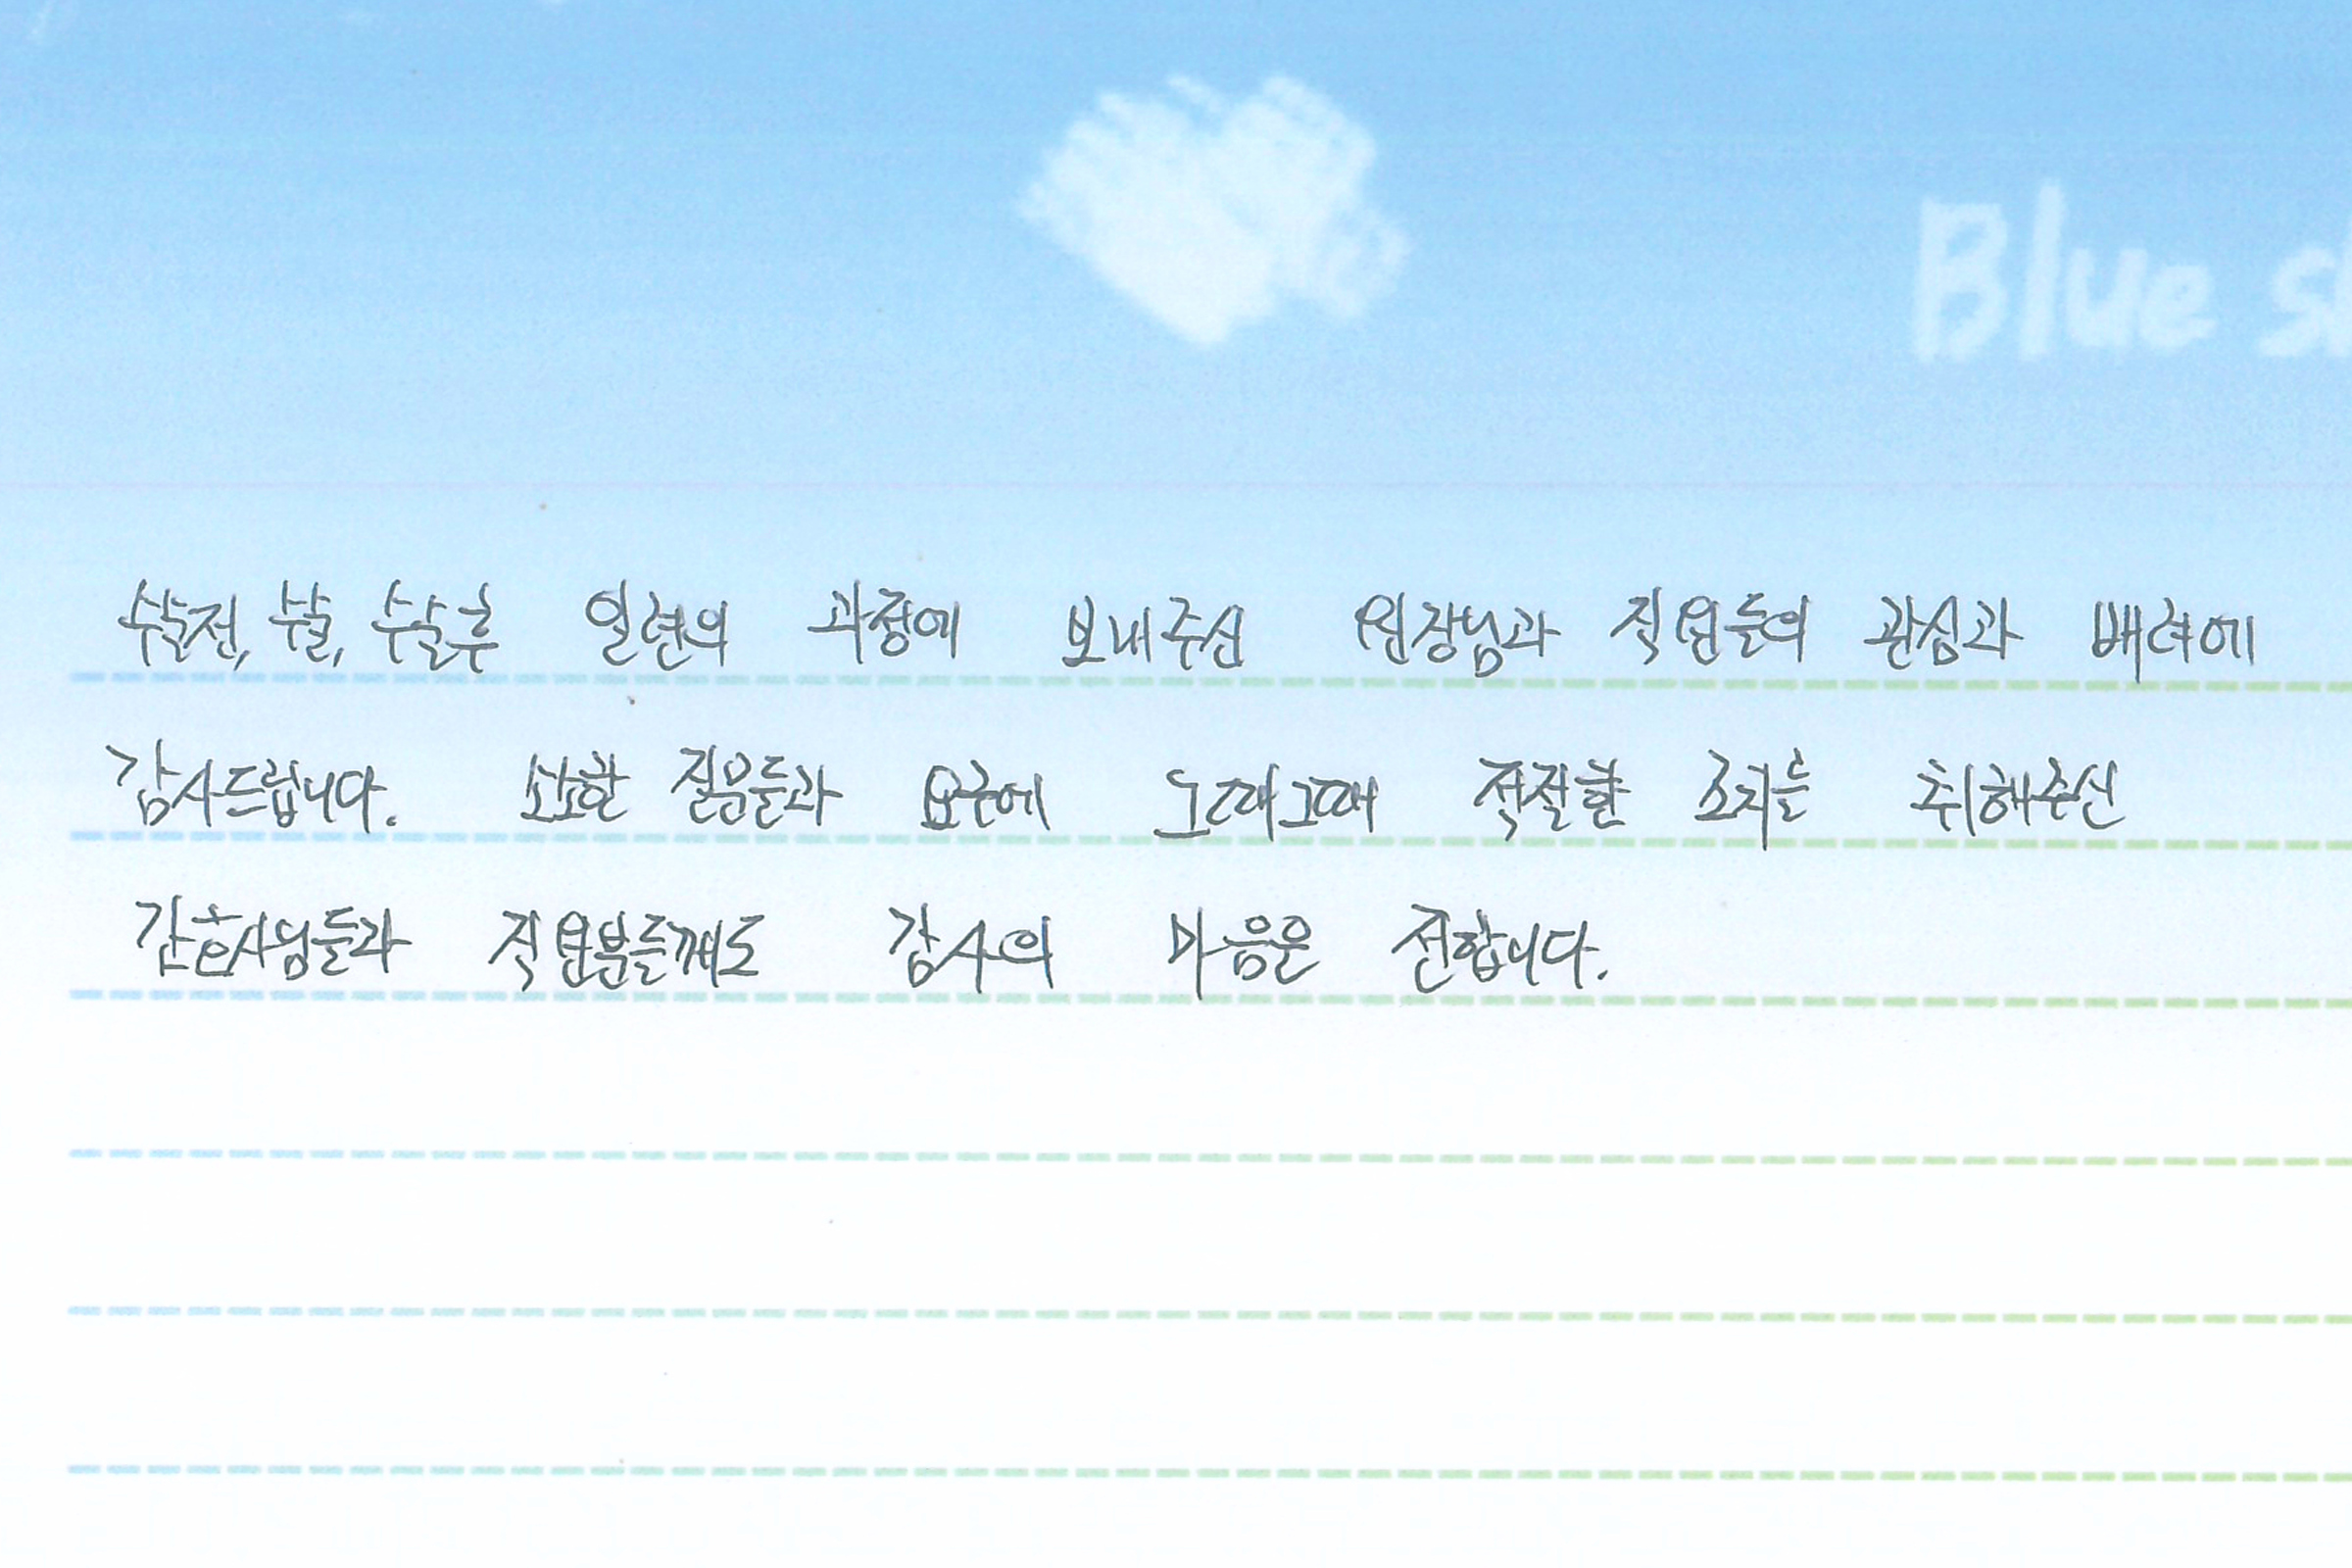 Blue s
수술전, 수술, 수술후 일련의 과정에 보내주신 원장님과 직원들의 관심과 배려에
감사드립니다. 소소한 질문들과 요구에 그때그때 적절한 조치를 취해주신
간호사님들과 직원분들께도 감사의 마음을 전합니다.